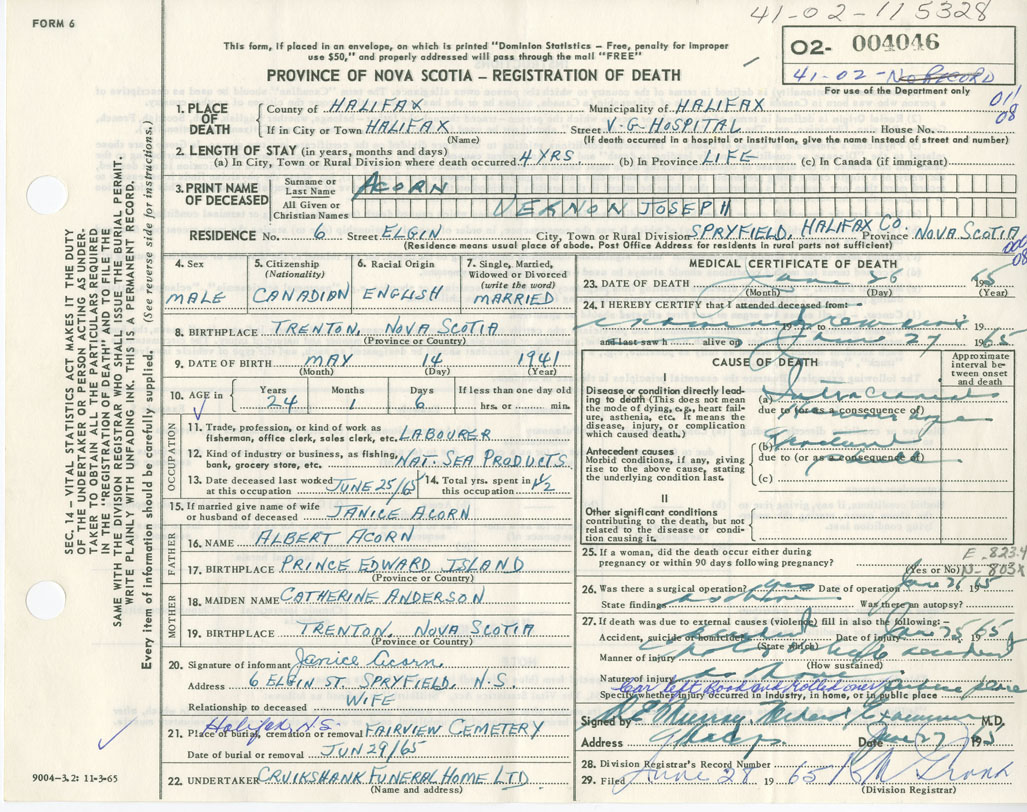 41-02-115328
FORM 6
This form, if placed in an envelope, on which is printed "Dominion Statistics – Free, penalty for improper
use $50," and properly addressed will pass through the mail "FREE"
O2- 004046
41-02-No RECORD
For use of the Department only
PROVINCE OF NOVA SCOTIA – REGISTRATION OF DEATH
011
08
1. PLACE OF DEATH
County of HALIFAX Municipality of HALIFAX
If in City or Town HALIFAX Street V-G-HOSPITAL House No.
(Name) (If death occurred in a hospital or institution, give the name instead of street and number)
2. LENGTH OF STAY (in years, months and days)
(a) In City, Town or Rural Division where death occurred 4 YRS. (b) In Province LIFE (c) In Canada (if immigrant)
3. PRINT NAME OF DECEASED
Surname or Last Name ACORN
All Given or Christian Names VERNON JOSEPH
RESIDENCE No. 6 Street ELGIN City, Town or Rural Division SPRYFIELD, HALIFAX CO. Province NOVA SCOTIA
(Residence means usual place of abode. Post Office Address for residents in rural parts not sufficient)
08
4. Sex MALE
5. Citizenship (Nationality) CANADIAN
6. Racial Origin ENGLISH
7. Single, Married, Widowed or Divorced (write the word) MARRIED
8. BIRTHPLACE TRENTON, NOVA SCOTIA
(Province or Country)
9. DATE OF BIRTH MAY 14 1941
(Month) (Day) (Year)
10. AGE in Years 24 Months 1 Days 6 If less than one day old hrs. or min.
OCCUPATION
11. Trade, profession, or kind of work as fisherman, office clerk, sales clerk, etc. LABOURER
12. Kind of industry or business, as fishing, bank, grocery store, etc. NAT. SEA PRODUCTS
13. Date deceased last worked at this occupation JUNE 25/65 14. Total yrs. spent in this occupation 1/2
15. If married give name of wife or husband of deceased JANICE ACORN
FATHER
16. NAME ALBERT ACORN
17. BIRTHPLACE PRINCE EDWARD ISLAND
(Province or Country)
MOTHER
18. MAIDEN NAME CATHERINE ANDERSON
19. BIRTHPLACE TRENTON, NOVA SCOTIA
(Province or Country)
20. Signature of informant Janice Acorn.
Address 6 ELGIN ST. SPRYFIELD, N.S.
Relationship to deceased WIFE
Halifax, N.S.
21. Place of burial, cremation or removal FAIRVIEW CEMETERY
Date of burial or removal JUN 29/65
22. UNDERTAKER CRUIKSHANK FUNERAL HOME LTD
(Name and address)
MEDICAL CERTIFICATE OF DEATH
23. DATE OF DEATH June 26 1965
(Month) (Day) (Year)
24. I HEREBY CERTIFY that I attended deceased from:
19 to 19
and last saw h alive on June 27 1965
CAUSE OF DEATH
Approximate interval between onset and death
I
Disease or condition directly leading to death (This does not mean the mode of dying, e.g., heart failure, asthenia, etc. It means the disease, injury, or complication which caused death.)
(a) Intracranial
due to (or as a consequence of)
Antecedent causes
Morbid conditions, if any, giving rise to the above cause, stating the underlying condition last.
(b) Fractured
due to (or as a consequence of) skull
(c)
II
Other significant conditions
contributing to the death, but not related to the disease or condition causing it.
25. If a woman, did the death occur either during pregnancy or within 90 days following pregnancy? (Yes or No)
E-8234
N-803X
26. Was there a surgical operation? yes Date of operation June 26/65
State findings as above Was there an autopsy?
27. If death was due to external causes (violence) fill in also the following:–
Accident, suicide or homicide accident Date of injury June 25/65 19
(State which)
Manner of injury
(How sustained)
Nature of injury as above
Car left Road and rolled over
Specify whether injury occurred in industry, in home, or in public place Public place
Signed by Murray, Medical Examiner M.D.
Address Date June 27 1965
28. Division Registrar's Record Number
29. Filed June 28 1965
(Division Registrar)
SEC. 14 – VITAL STATISTICS ACT MAKES IT THE DUTY
OF THE UNDERTAKER OR PERSON ACTING AS UNDER-
TAKER TO OBTAIN ALL THE PARTICULARS REQUIRED
IN THE "REGISTRATION OF DEATH" AND TO FILE THE
SAME WITH THE DIVISION REGISTRAR WHO SHALL ISSUE THE BURIAL PERMIT.
WRITE PLAINLY WITH UNFADING INK. THIS IS A PERMANENT RECORD.
Every item of information should be carefully supplied. (See reverse side for instructions.)
9004-3.2: 11-3-65